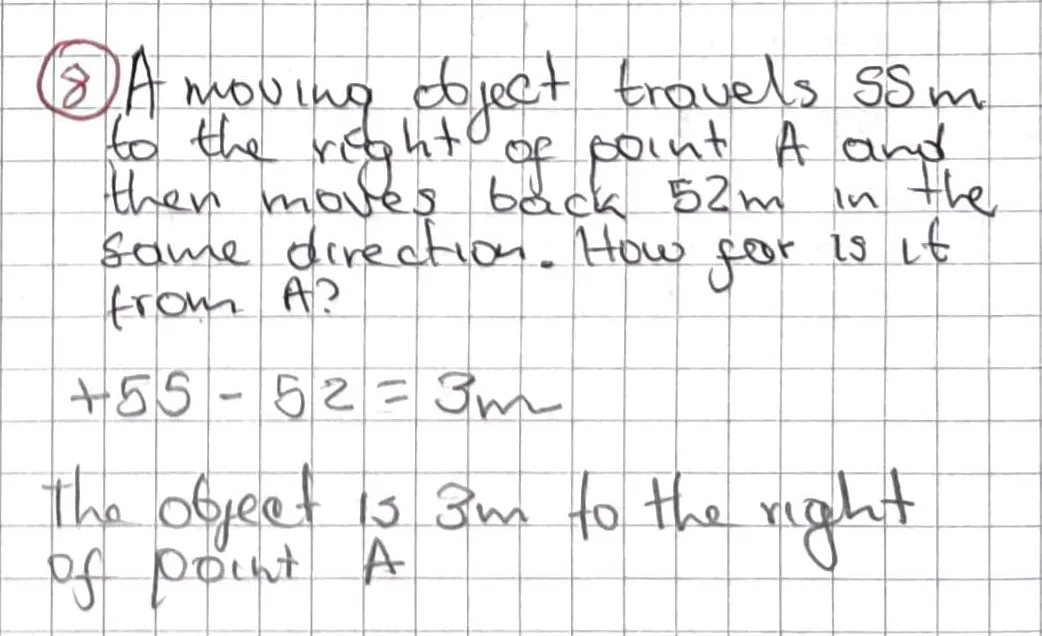 8 A moving object travels 55m
to the right of point A and
then moves back 52m in the
same direction. How far is it
from A?
+55 - 52 = 3m
The object is 3m to the right
of point A